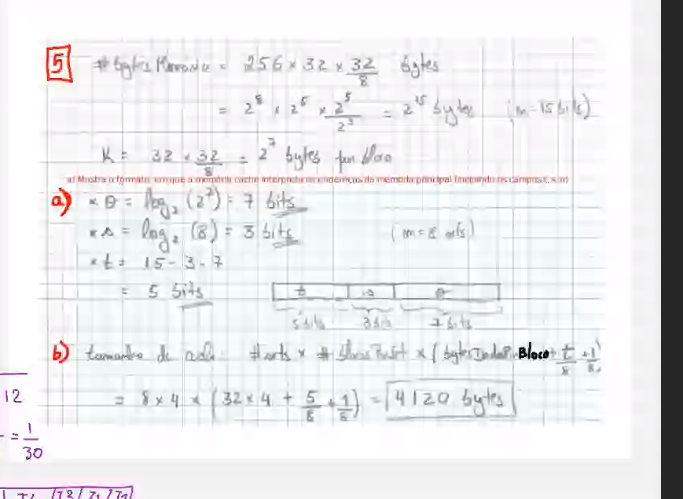 5 # bytes Memória = 256 × 32 × 32/8 bytes
= 2^8 × 2^5 × 2^5/2^3 = 2^15 bytes (m=15 bits)
K = 32 × 32/8 = 2^7 bytes por bloco
a) Mostre o formato em que a memória cache interpreta os endereços da memória principal (indicando os campos t, s,
a) × θ = log₂ (2^7) = 7 bits
× s = log₂ (8) = 3 bits (m=8 sets)
× t = 15 - 3 - 7
= 5 bits
t s θ
5 bits 3 bits 7 bits
b) tamanho da cache # sets × # blocos Por Set × ( bytes Dados Bloco + t/8 + 1/8)
12
= 8 × 4 × (32 × 4 + 5/8 + 1/8) = 4120 bytes
= 1/30